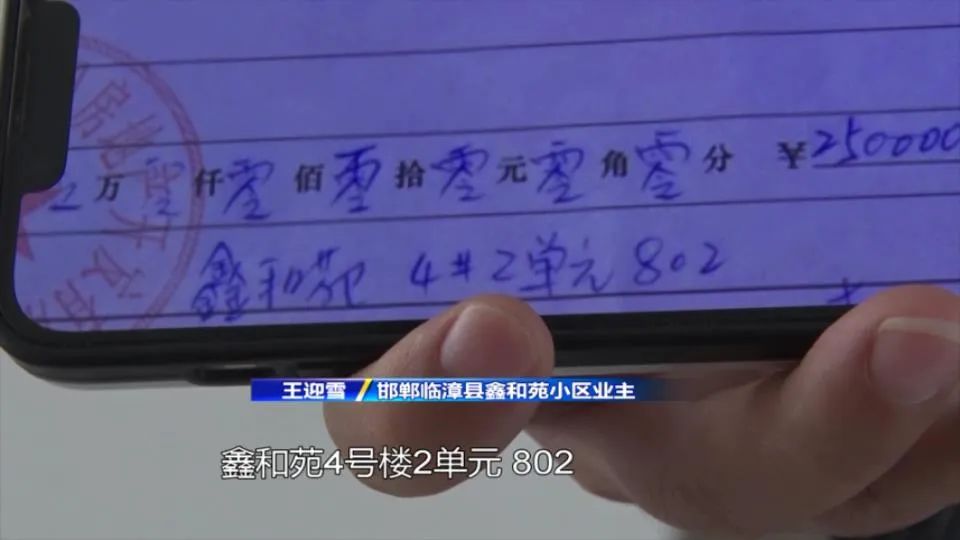 万零仟零佰零拾零元零角零分 ¥250000
鑫和苑 4#2单元802
王迎雪 邯郸临漳县鑫和苑小区业主
鑫和苑4号楼2单元 802